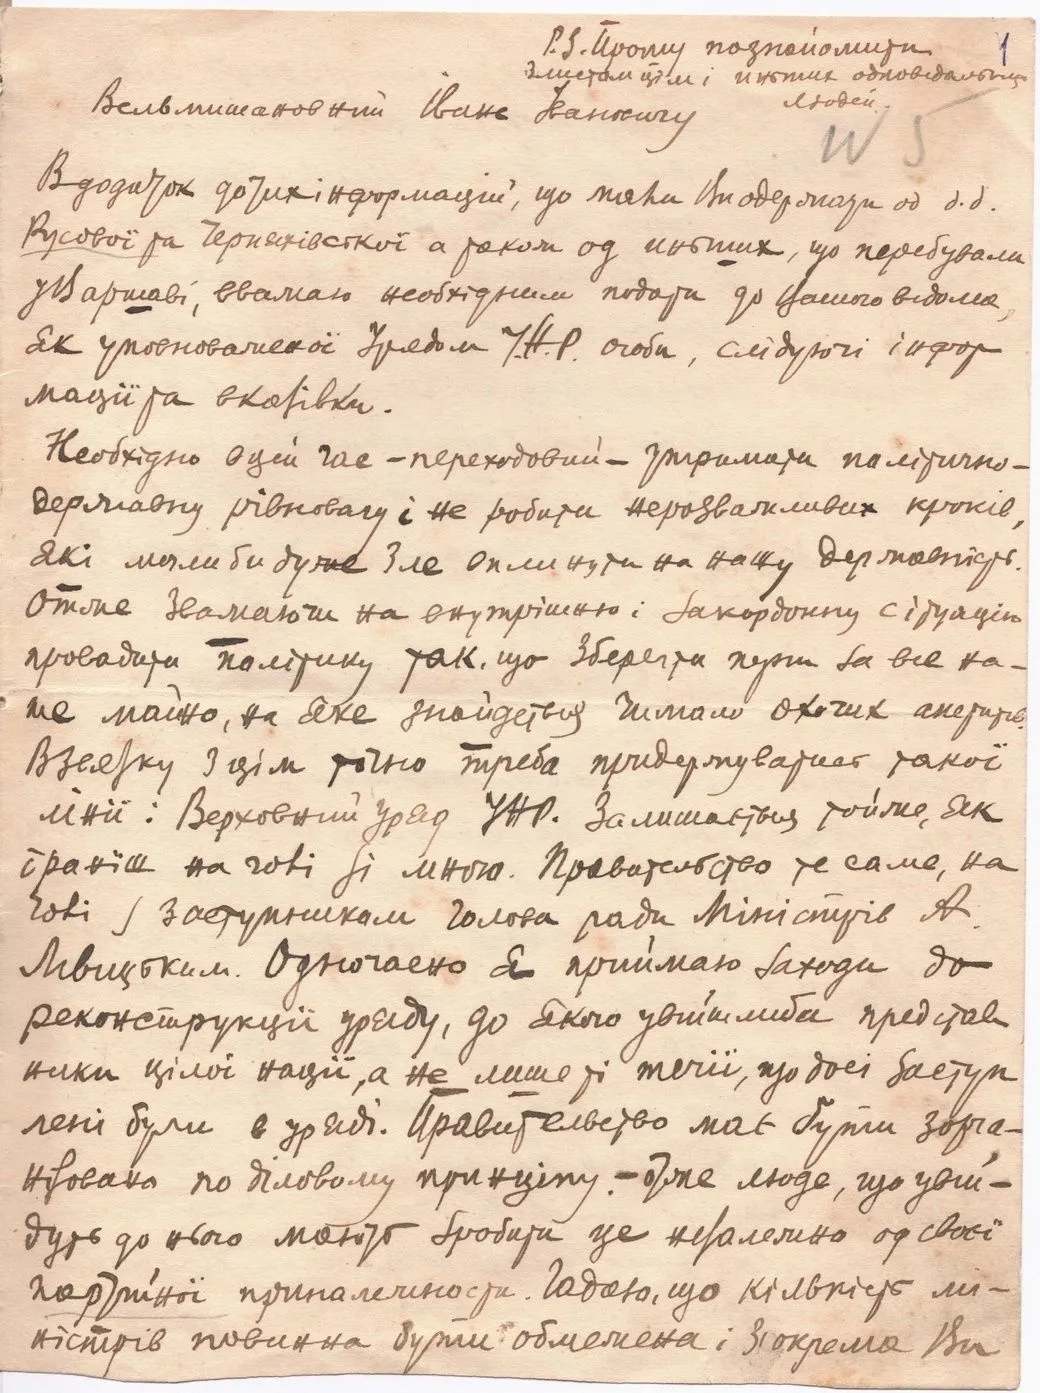 P.S. Прошу познайомити
з листом цім і инших одповідальних
людей.
1
Вельмишановний Іване Івановичу
N 5
В додаток до тих інформацій, що мали Ви одержати од д.д.
Русової та Черняхівської а також од инших, що перебували
у Варшаві, вважаю необхідним подати до Вашого відома,
як уповноваженої Урядом У.Н.Р. особи, слідуючі інфор
мації та вказівки.
Необхідно в цей час – переходовий – утримати політично-
державну рівновагу і не робити нерозважливих кроків,
які мали би дуже зле вплинути на нашу державність.
Отже зважаючи на внутрішню і закордонну сітуацію
провадити політику так, що зберегти перш за все на-
ше майно, на яке знайдеться чимало охочих апетитів.
В звязку з цім точно треба придержуватись такої
лінії: Верховний уряд УНР. залишається той же, як
і раніш на чолі зі мною. Правительство те саме, на
чолі з заступником голови ради Міністрів А.
Лівицьким. Одночасно я приймаю заходи до
реконструкції уряду, до якого увійшли би представ
ники цілої нації, а не лише ті течії, що досі заступ
лені були в уряді. Правительство має бути зорга-
нізовано по діловому принціпу. – отже люде, що увій-
дуть до нього мають зробити це незалежно од своєї
партійної приналежности. Гадаю, що кількість мі-
ністрів повинна бути обмежена і зокрема Ви